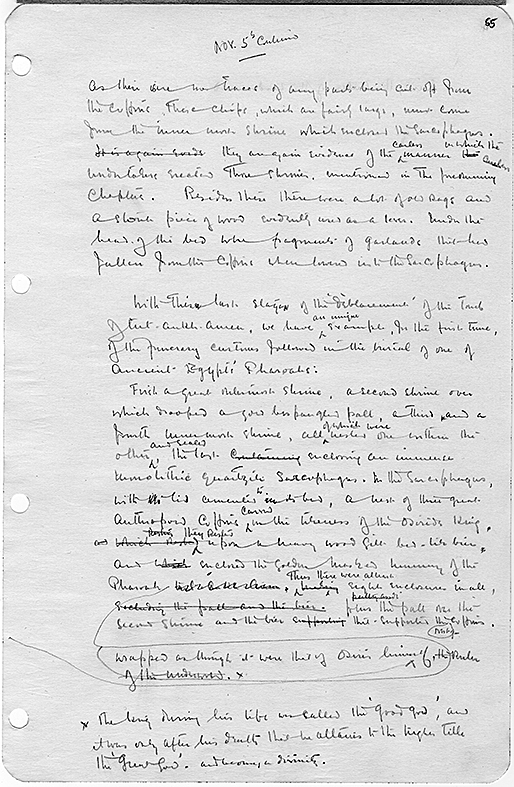 65
Nov. 5th Continued
as there were no traces of any parts being cut off from
the coffins, these chips, which are fairly large, must come
from the inner most shrine which enclosed the Sarcophagus.
It is again they are again evidence of the careless manner in which the
undertakers erected those shrines, mentioned in the preceeding
Chapters. Besides these there were a lot of old rags and
a stout piece of wood evidently used as a lever. Under the
head of the bed were fragments of garlands that had
fallen from the Coffins when lowered into the Sarcophagus.
With these last stages of the 'displacement' of the Tomb
of Tut-ankh-Amen, we have an unique example, for the first time,
of the funerary customs followed in the burial of one of
Ancient Egypt's Pharaohs:
First a great outermost shrine, a second shrine over
which drooped a gold bespangled pall, a third and a
fourth innermost shrine, all of which were nested one within the
other, and sealed the last containing enclosing an immense
monolithic quartzite Sarcophagus. In the Sarcophagus,
with its lid cemented to its bed, a nest of three great
Anthropoid Coffins carved in the likeness of the Osiride King,
which rested they rested upon a heavy wood gilt bed-like bier,
and enclosed the golden masked mummy of the
Pharaoh Thus there were all told eight enclosures in all,
excluding the pall and the bier. plus the pall over the
second shrine and the bier supporting that supported the Coffins.
wrapped as though it were that of Osiris himself, the ruler
of the underworld. x
x The king during his life was called the 'Good God', and
it was only after his death that he attains to the higher title
the 'Great God'. and becomes a divinity.